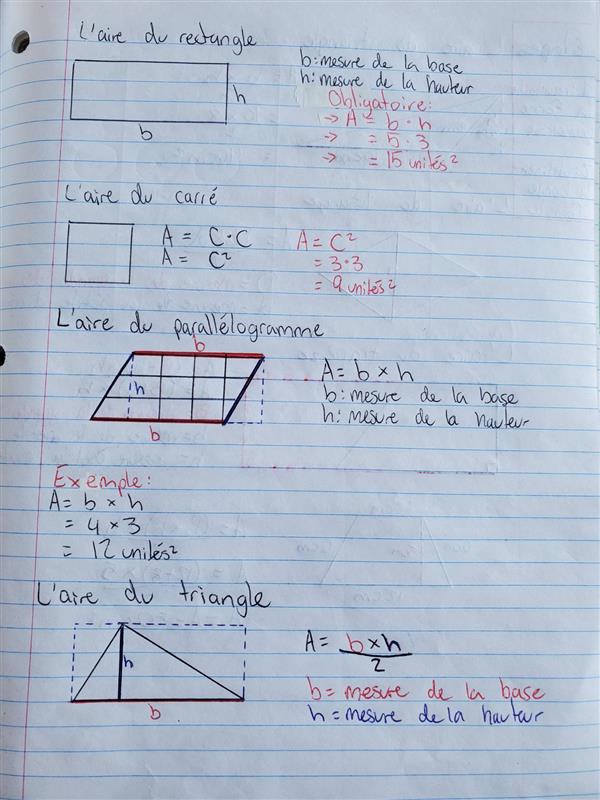 L'aire du rectangle
b: mesure de la base
h: mesure de la hauteur
h
b
Obligatoire:
→ A = b · h
→ = 5 · 3
→ = 15 unités²
L'aire du carré
A = C · C
A = C²
A = C²
= 3 · 3
= 9 unités²
L'aire du parallélogramme
b
h
b
A = b × h
b: mesure de la base
h: mesure de la hauteur
Exemple:
A = b × h
= 4 × 3
= 12 unités²
L'aire du triangle
h
b
A = b × h
2
b = mesure de la base
h = mesure de la hauteur